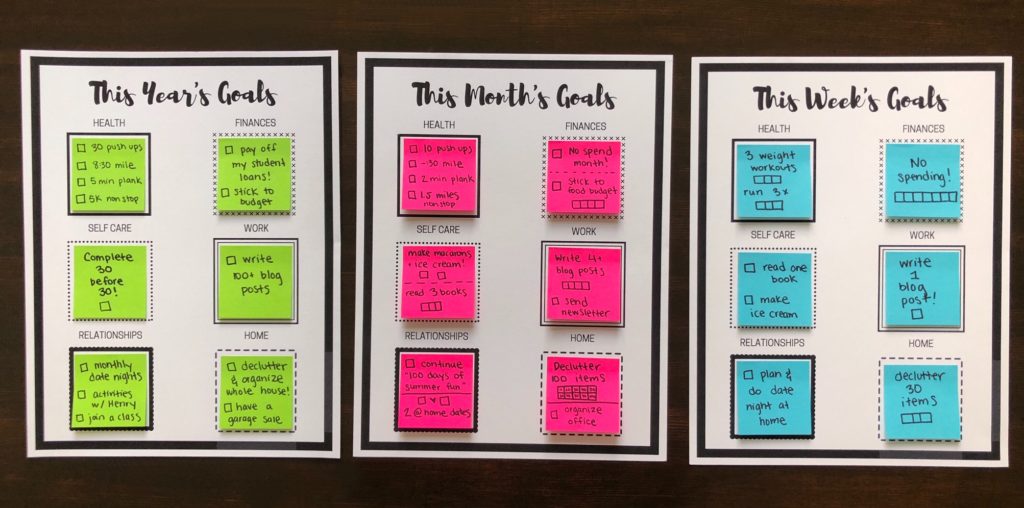 This Year's Goals
HEALTH
30 push ups
8:30 mile
5 min plank
5K nonstop
FINANCES
pay off
my student
loans!
stick to
budget
SELF CARE
Complete
30
before
30!
WORK
write
100+ blog
posts
RELATIONSHIPS
monthly
date nights
activities
w/ Henry
join a class
HOME
declutter
& organize
whole house!
have a
garage sale
This Month's Goals
HEALTH
10 push ups
-:30 mile
2 min plank
1.5 miles
nonstop
FINANCES
No spend
month!
stick to
food budget
SELF CARE
make macarons
+ ice cream!
read 3 books
WORK
write 4+
blog posts
send
newsletter
RELATIONSHIPS
continue
"100 days of
summer fun"
2 @home dates
HOME
Declutter
100 items
organize
office
This Week's Goals
HEALTH
3 weight
workouts
run 3x
FINANCES
No
spending!
SELF CARE
read one
book
make
ice cream
WORK
write
1
blog
post!
RELATIONSHIPS
plan &
do date
night at
home
HOME
declutter
30
items